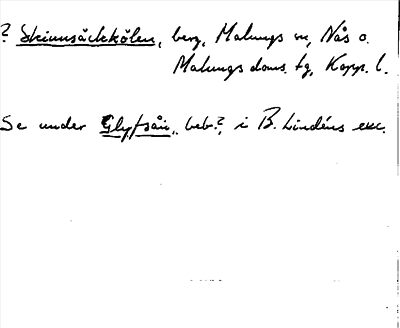 ? Skinnsäckkölen, berg, Malungs sn, Nås o.
Malungs doms. tg, Kopp. l.
Se under Glyfsån, beb.?, i B. Lindéns exc.